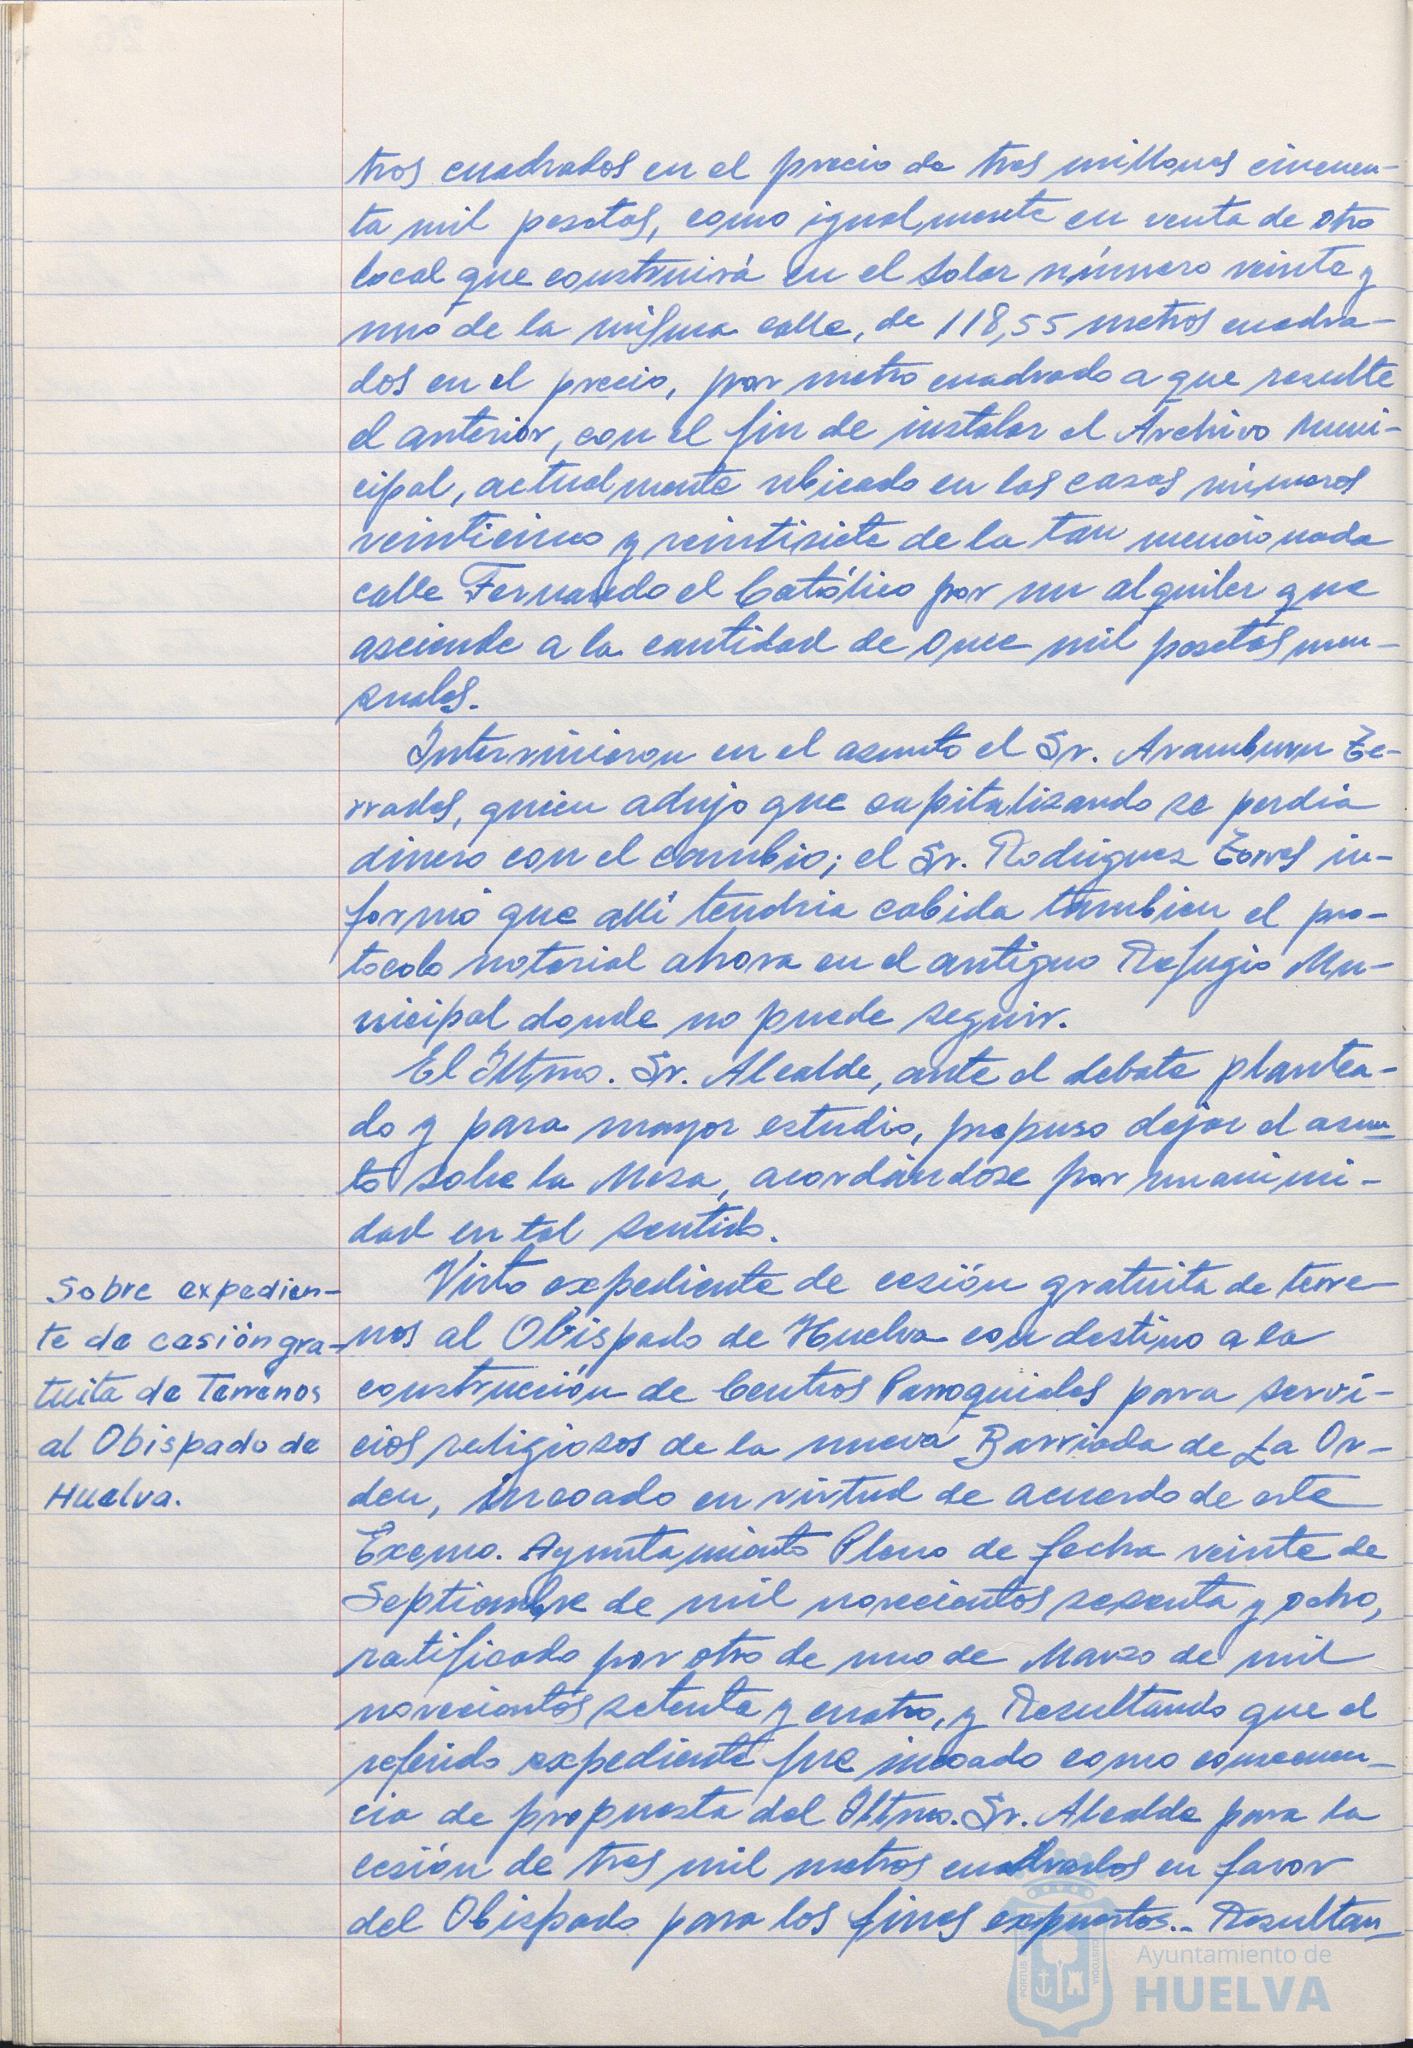 tros cuadrados en el precio de tres millones cincuen-
ta mil pesetas, como igualmente en venta de otro
local que construirá en el solar número veinte y
uno de la misma calle, de 118,55 metros cuadra-
dos en el precio, por metro cuadrado a que resulte
el anterior, con el fin de instalar el Archivo Muni-
cipal, actualmente ubicado en las casas números
veinticinco y veintisiete de la tan mencionada
calle Fernando el Católico por un alquiler que
asciende a la cantidad de once mil pesetas men-
suales.
Intervinieron en el asunto el Sr. Aramburu Te-
rrades, quien adujo que capitalizando se perdía
dinero con el cambio; el Sr. Rodríguez Torres in-
formó que allí tendría cabida tambien el pro-
tocolo notarial ahora en el antiguo Refugio Mu-
nicipal donde no puede seguir.
El Iltmo. Sr. Alcalde, ante el debate plantea-
do y para mayor estudio, propuso dejar el asun-
to sobre la Mesa, acordándose por unanimi-
dad en tal sentido.
Sobre expedien-
te de cesión gra-
tuita de Terrenos
al Obispado de
Huelva.
Visto expediente de cesión gratuita de terre-
nos al Obispado de Huelva con destino a la
construcción de Centros Parroquiales para servi-
cios religiosos de la nueva Barriada de La Or-
den, incoado en virtud de acuerdo de este
Excmo. Ayuntamiento Pleno de fecha veinte de
Septiembre de mil novecientos sesenta y ocho,
ratificado por otro de uno de Marzo de mil
novecientos setenta y cuatro, y Resultando que el
referido expediente fue incoado como consecuen-
cia de propuesta del Iltmo. Sr. Alcalde para la
cesión de tres mil metros cuadrados en favor
del Obispado para los fines expuestos.- Resultan-
Ayuntamiento de
HUELVA